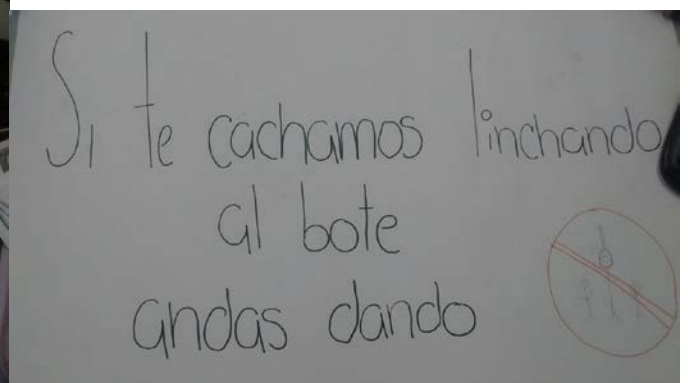 Si te cachamos linchando
al bote
andas dando